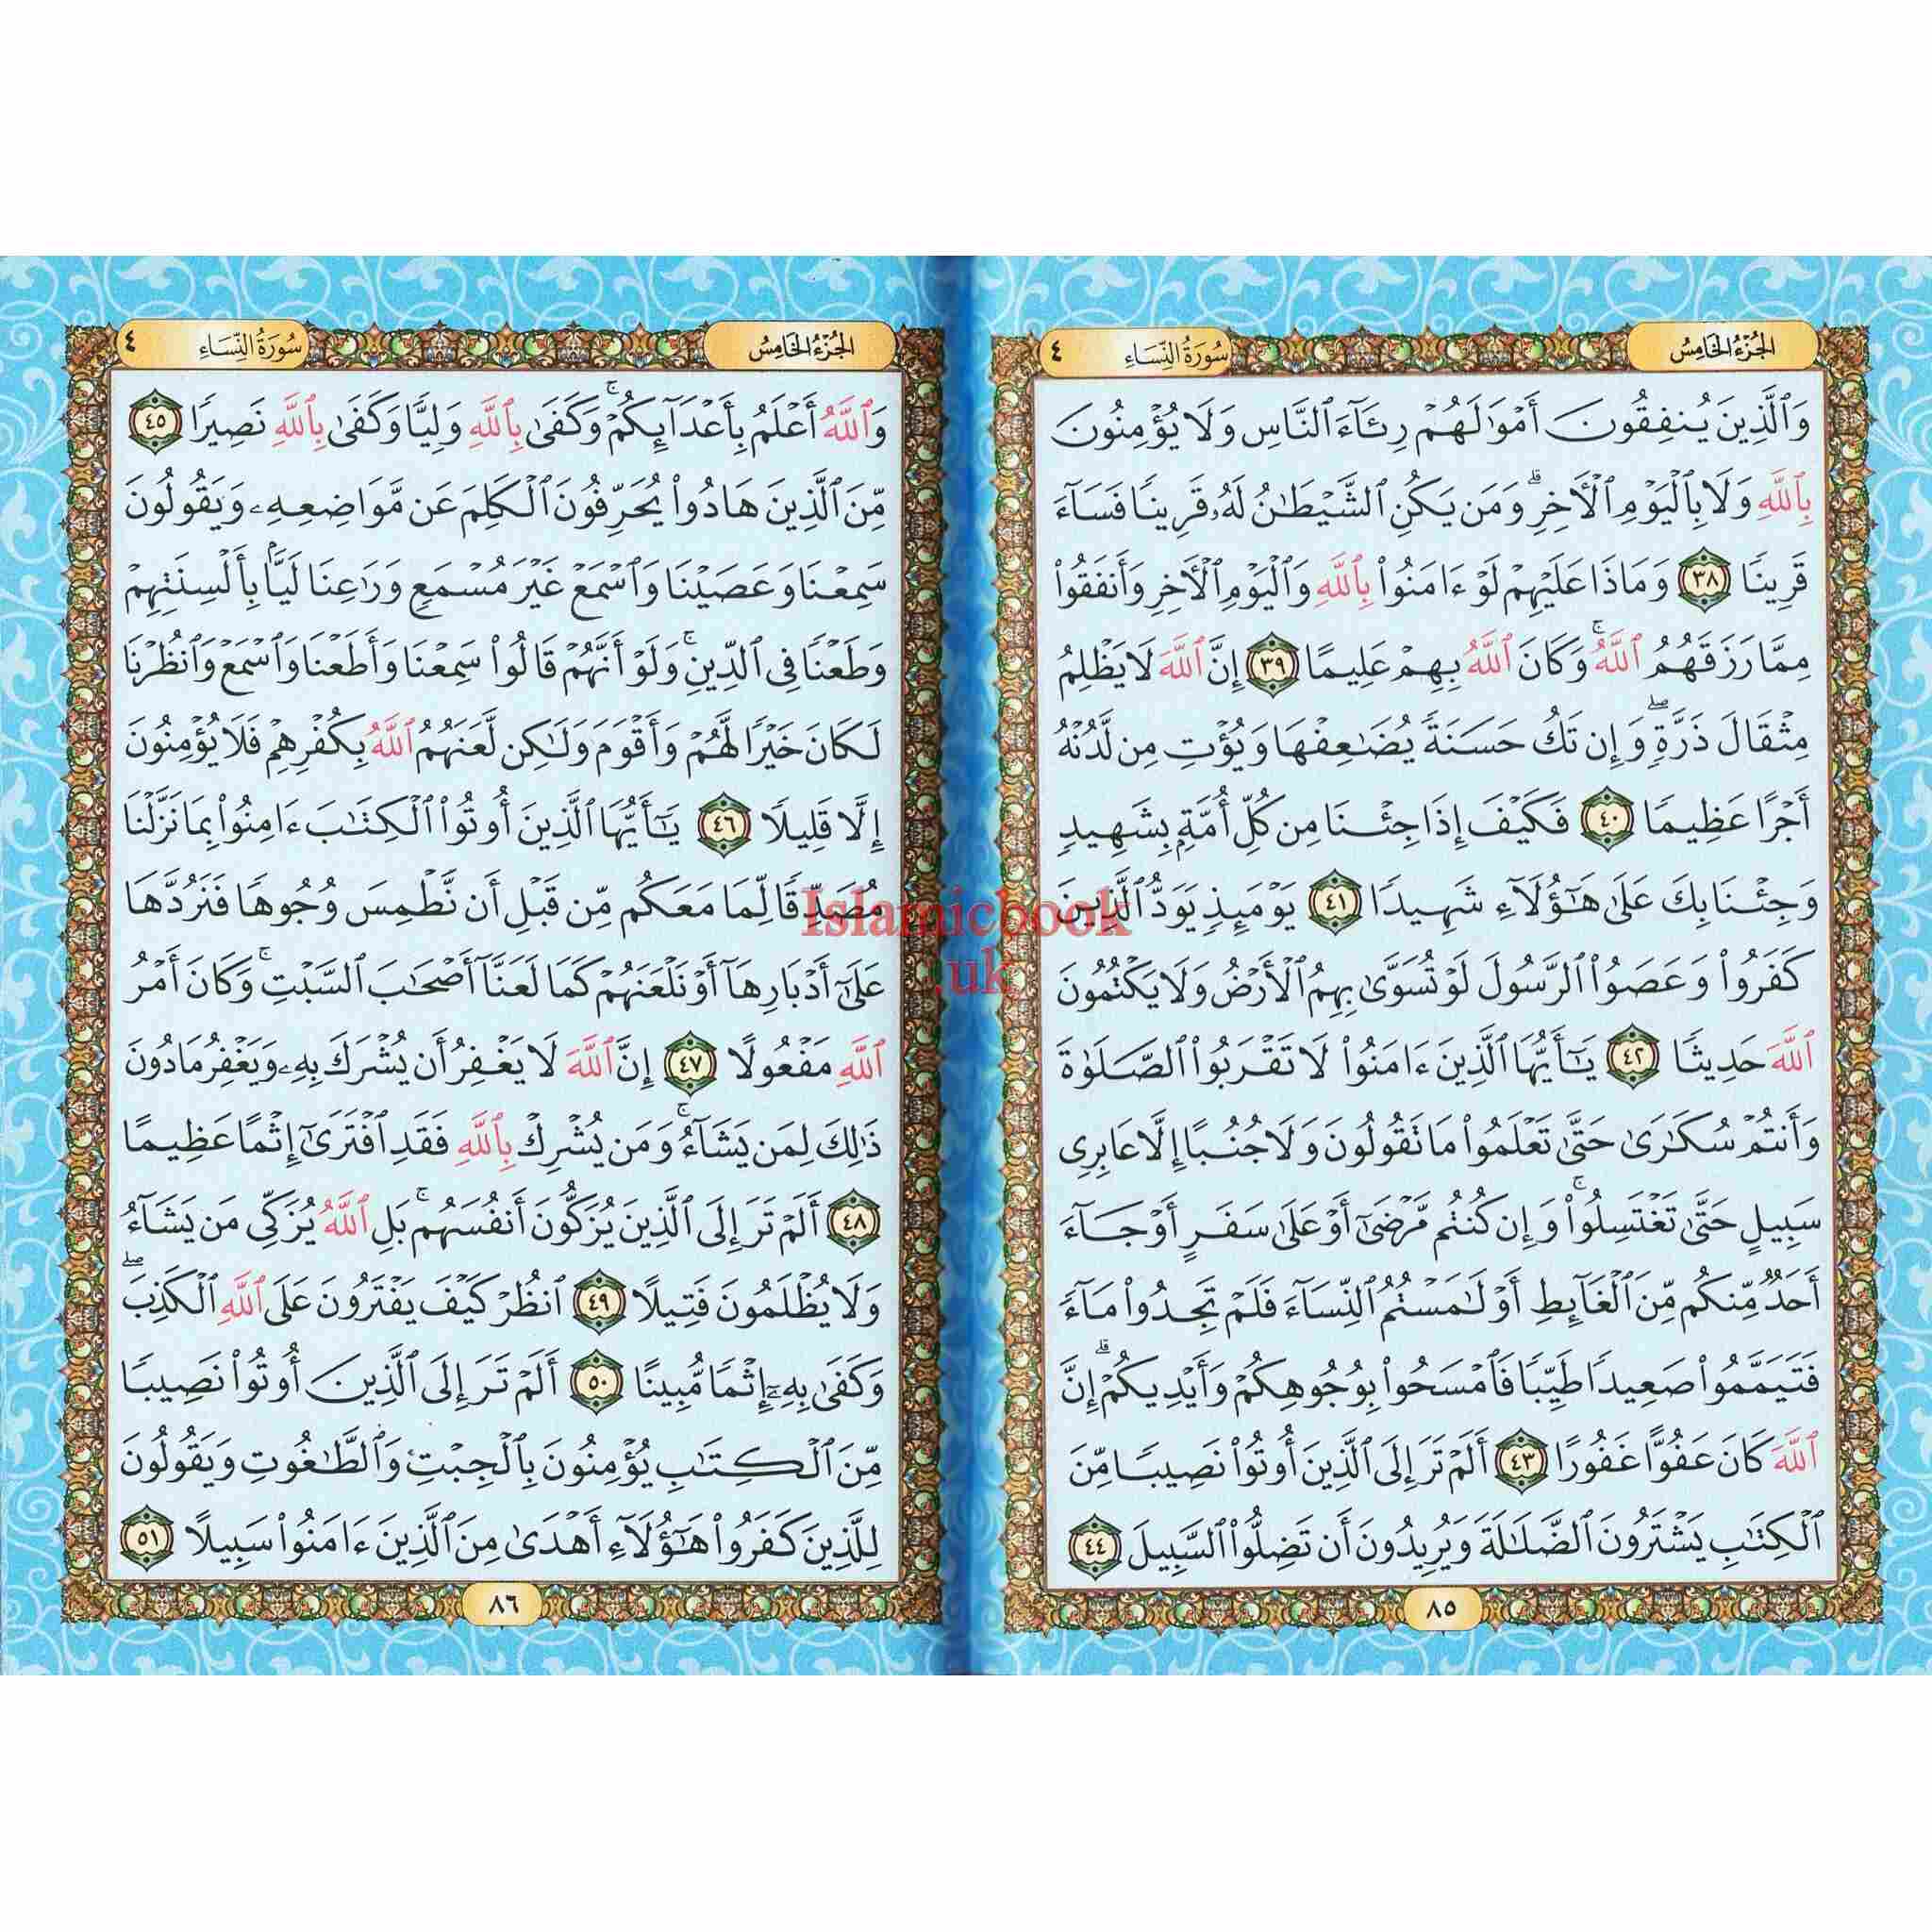 الجزء الخامس
سورة النساء ٤
وَٱلَّذِينَ يُنفِقُونَ أَمْوَٰلَهُمْ رِئَآءَ ٱلنَّاسِ وَلَا يُؤْمِنُونَ
بِٱللَّهِ وَلَا بِٱلْيَوْمِ ٱلْأَخِرِ ۗ وَمَن يَكُنِ ٱلشَّيْطَٰنُ لَهُۥ قَرِينًا فَسَآءَ
قَرِينًا ٣٨ وَمَاذَا عَلَيْهِمْ لَوْ ءَامَنُوا۟ بِٱللَّهِ وَٱلْيَوْمِ ٱلْأَخِرِ وَأَنفَقُوا۟
مِمَّا رَزَقَهُمُ ٱللَّهُ ۚ وَكَانَ ٱللَّهُ بِهِمْ عَلِيمًا ٣٩ إِنَّ ٱللَّهَ لَا يَظْلِمُ
مِثْقَالَ ذَرَّةٍ ۖ وَإِن تَكُ حَسَنَةً يُضَٰعِفْهَا وَيُؤْتِ مِن لَّدُنْهُ
أَجْرًا عَظِيمًا ٤٠ فَكَيْفَ إِذَا جِئْنَا مِن كُلِّ أُمَّةٍۭ بِشَهِيدٍ
وَجِئْنَا بِكَ عَلَىٰ هَٰٓؤُلَآءِ شَهِيدًا ٤١ يَوْمَئِذٍ يَوَدُّ ٱلَّذِينَ
كَفَرُوا۟ وَعَصَوُا۟ ٱلرَّسُولَ لَوْ تُسَوَّىٰ بِهِمُ ٱلْأَرْضُ وَلَا يَكْتُمُونَ
ٱللَّهَ حَدِيثًا ٤٢ يَٰٓأَيُّهَا ٱلَّذِينَ ءَامَنُوا۟ لَا تَقْرَبُوا۟ ٱلصَّلَوٰةَ
وَأَنتُمْ سُكَٰرَىٰ حَتَّىٰ تَعْلَمُوا۟ مَا تَقُولُونَ وَلَا جُنُبًا إِلَّا عَابِرِى
سَبِيلٍ حَتَّىٰ تَغْتَسِلُوا۟ ۚ وَإِن كُنتُم مَّرْضَىٰٓ أَوْ عَلَىٰ سَفَرٍ أَوْ جَآءَ
أَحَدٌ مِّنكُم مِّنَ ٱلْغَآئِطِ أَوْ لَٰمَسْتُمُ ٱلنِّسَآءَ فَلَمْ تَجِدُوا۟ مَآءً
فَتَيَمَّمُوا۟ صَعِيدًا طَيِّبًا فَٱمْسَحُوا۟ بِوُجُوهِكُمْ وَأَيْدِيكُمْ ۗ إِنَّ
ٱللَّهَ كَانَ عَفُوًّا غَفُورًا ٤٣ أَلَمْ تَرَ إِلَى ٱلَّذِينَ أُوتُوا۟ نَصِيبًا مِّنَ
ٱلْكِتَٰبِ يَشْتَرُونَ ٱلضَّلَٰلَةَ وَيُرِيدُونَ أَن تَضِلُّوا۟ ٱلسَّبِيلَ ٤٤
٨٥
الجزء الخامس
سورة النساء ٤
وَٱللَّهُ أَعْلَمُ بِأَعْدَآئِكُمْ ۚ وَكَفَىٰ بِٱللَّهِ وَلِيًّا وَكَفَىٰ بِٱللَّهِ نَصِيرًا ٤٥
مِّنَ ٱلَّذِينَ هَادُوا۟ يُحَرِّفُونَ ٱلْكَلِمَ عَن مَّوَاضِعِهِۦ وَيَقُولُونَ
سَمِعْنَا وَعَصَيْنَا وَٱسْمَعْ غَيْرَ مُسْمَعٍ وَرَٰعِنَا لَيًّۢا بِأَلْسِنَتِهِمْ
وَطَعْنًا فِى ٱلدِّينِ ۚ وَلَوْ أَنَّهُمْ قَالُوا۟ سَمِعْنَا وَأَطَعْنَا وَٱسْمَعْ وَٱنظُرْنَا
لَكَانَ خَيْرًا لَّهُمْ وَأَقْوَمَ وَلَٰكِن لَّعَنَهُمُ ٱللَّهُ بِكُفْرِهِمْ فَلَا يُؤْمِنُونَ
إِلَّا قَلِيلًا ٤٦ يَٰٓأَيُّهَا ٱلَّذِينَ أُوتُوا۟ ٱلْكِتَٰبَ ءَامِنُوا۟ بِمَا نَزَّلْنَا
مُصَدِّقًا لِّمَا مَعَكُم مِّن قَبْلِ أَن نَّطْمِسَ وُجُوهًا فَنَرُدَّهَا
عَلَىٰٓ أَدْبَارِهَآ أَوْ نَلْعَنَهُمْ كَمَا لَعَنَّآ أَصْحَٰبَ ٱلسَّبْتِ ۚ وَكَانَ أَمْرُ
ٱللَّهِ مَفْعُولًا ٤٧ إِنَّ ٱللَّهَ لَا يَغْفِرُ أَن يُشْرَكَ بِهِۦ وَيَغْفِرُ مَا دُونَ
ذَٰلِكَ لِمَن يَشَآءُ ۚ وَمَن يُشْرِكْ بِٱللَّهِ فَقَدِ ٱفْتَرَىٰٓ إِثْمًا عَظِيمًا
٤٨ أَلَمْ تَرَ إِلَى ٱلَّذِينَ يُزَكُّونَ أَنفُسَهُم ۚ بَلِ ٱللَّهُ يُزَكِّى مَن يَشَآءُ
وَلَا يُظْلَمُونَ فَتِيلًا ٤٩ ٱنظُرْ كَيْفَ يَفْتَرُونَ عَلَى ٱللَّهِ ٱلْكَذِبَ ۖ
وَكَفَىٰ بِهِۦٓ إِثْمًا مُّبِينًا ٥٠ أَلَمْ تَرَ إِلَى ٱلَّذِينَ أُوتُوا۟ نَصِيبًا
مِّنَ ٱلْكِتَٰبِ يُؤْمِنُونَ بِٱلْجِبْتِ وَٱلطَّٰغُوتِ وَيَقُولُونَ
لِلَّذِينَ كَفَرُوا۟ هَٰٓؤُلَآءِ أَهْدَىٰ مِنَ ٱلَّذِينَ ءَامَنُوا۟ سَبِيلًا ٥١
٨٦
Islamicbook
.uk